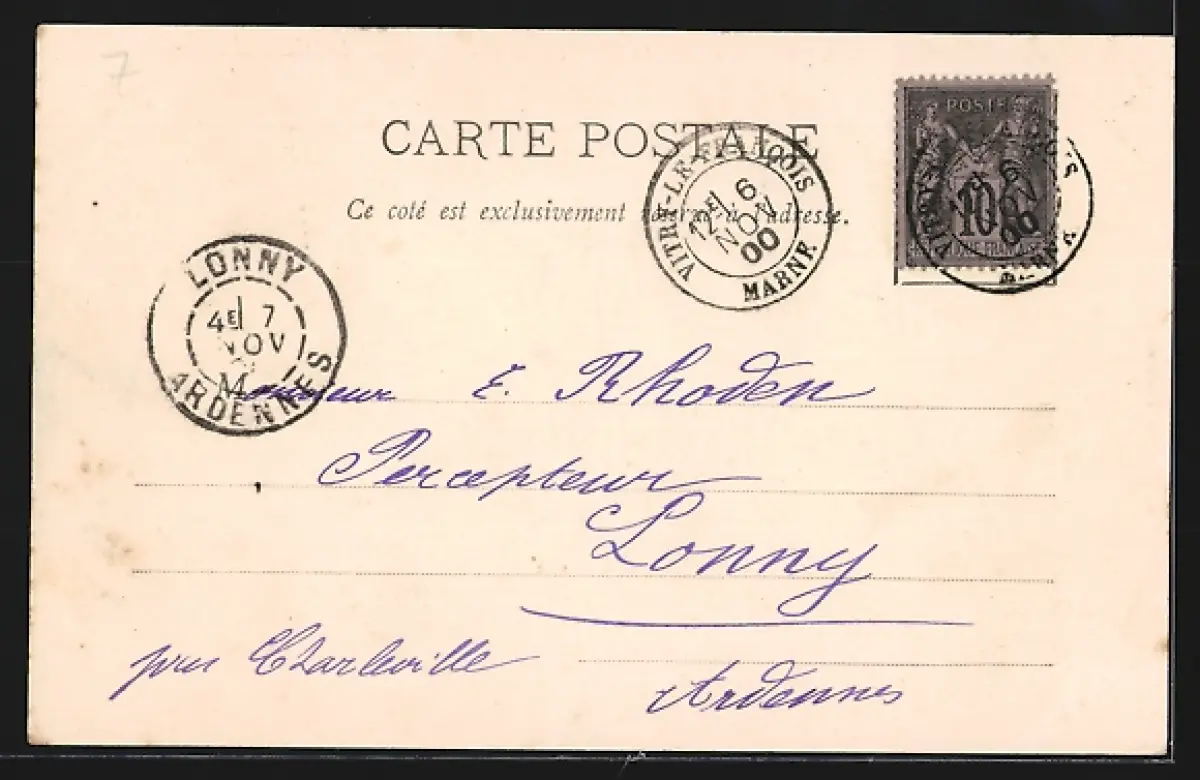 7
CARTE POSTALE
Ce coté est exclusivement réservé à l'adresse.
VITRY-LE-FRANÇOIS
12E 6
NOV
00
MARNE
POSTE
10
LONNY
4E 7
NOV
ARDENNES
Monsieur E. Rhoden
Percepteur
Lonny
près Charleville
Ardennes